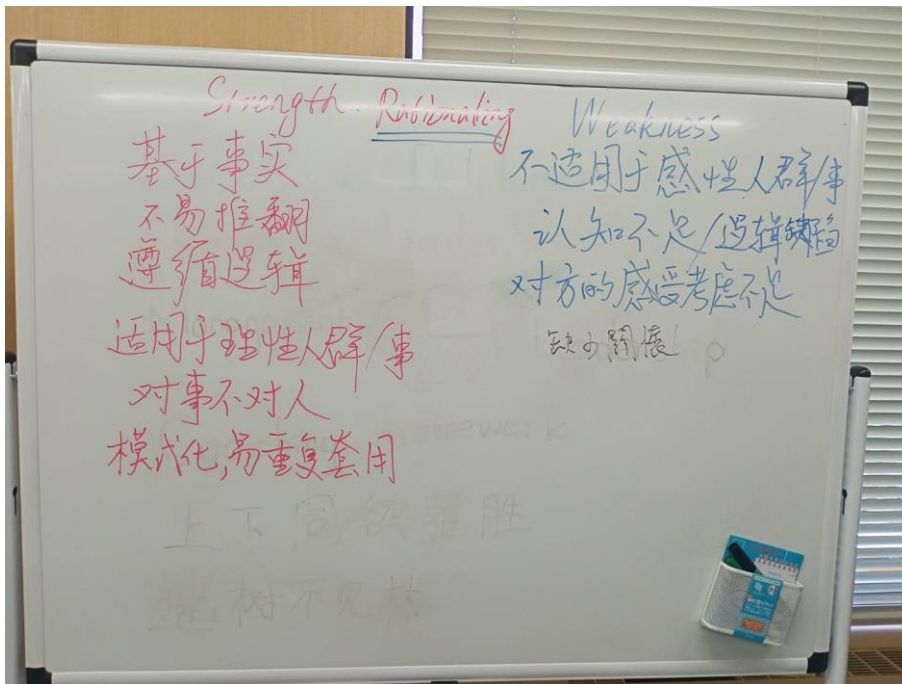 Strength. Rationaling Weakness
基于事实
不易推翻
遵循逻辑
适用于理性人群/事
对事不对人
模式化,易重复套用
不适用于感性人群/事
认知不足/逻辑缺陷
对方的感受考虑不足
缺少關懷
上下同欲者胜
树不见林